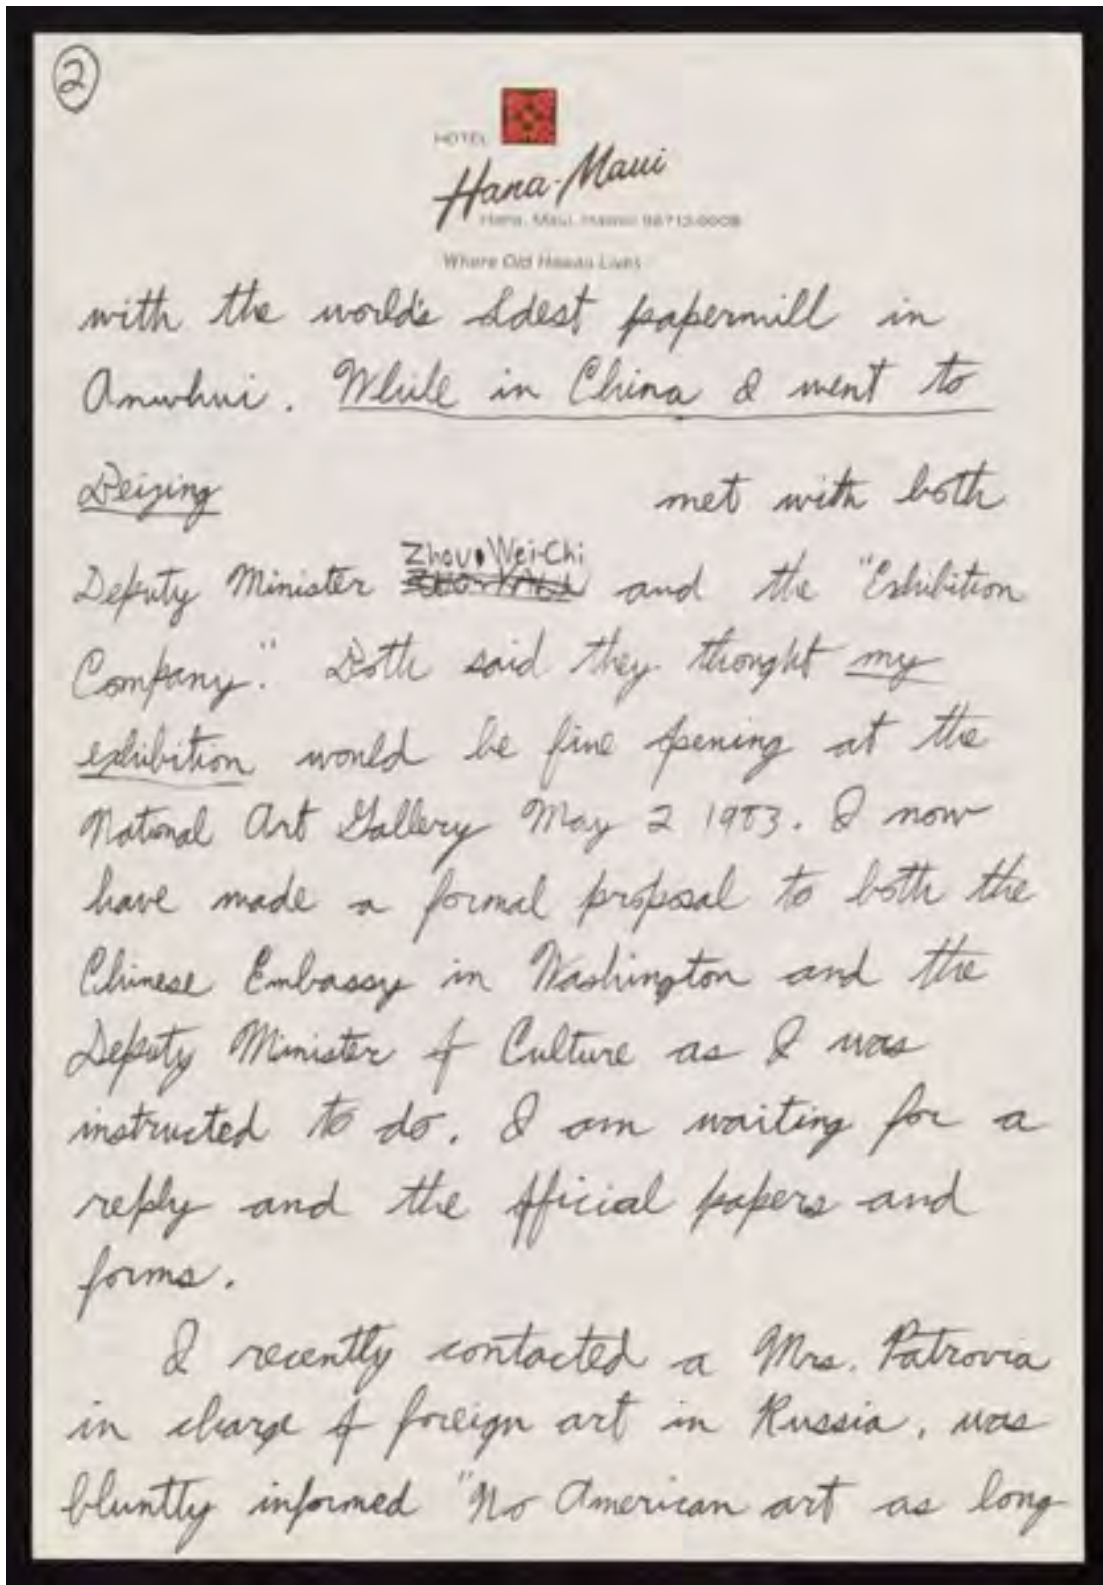 2
HOTEL
Hana-Maui
Hana, Maui, Hawaii 96713-0008
Where Old Hawaii Lives
with the world's oldest papermill in
Anwhui. While in China I went to
Beizing met with both
Zhou Wei-Chi
Deputy Minister and the "Exhibition
Company." Both said they thought my
exhibition would be fine opening at the
National Art Gallery May 2 1983. I now
have made a formal proposal to both the
Chinese Embassy in Washington and the
Deputy Minister of Culture as I was
instructed to do. I am waiting for a
reply and the official papers and
forms.
I recently contacted a Mrs. Patrovia
in charge of foreign art in Russia, was
bluntly informed "No American art as long